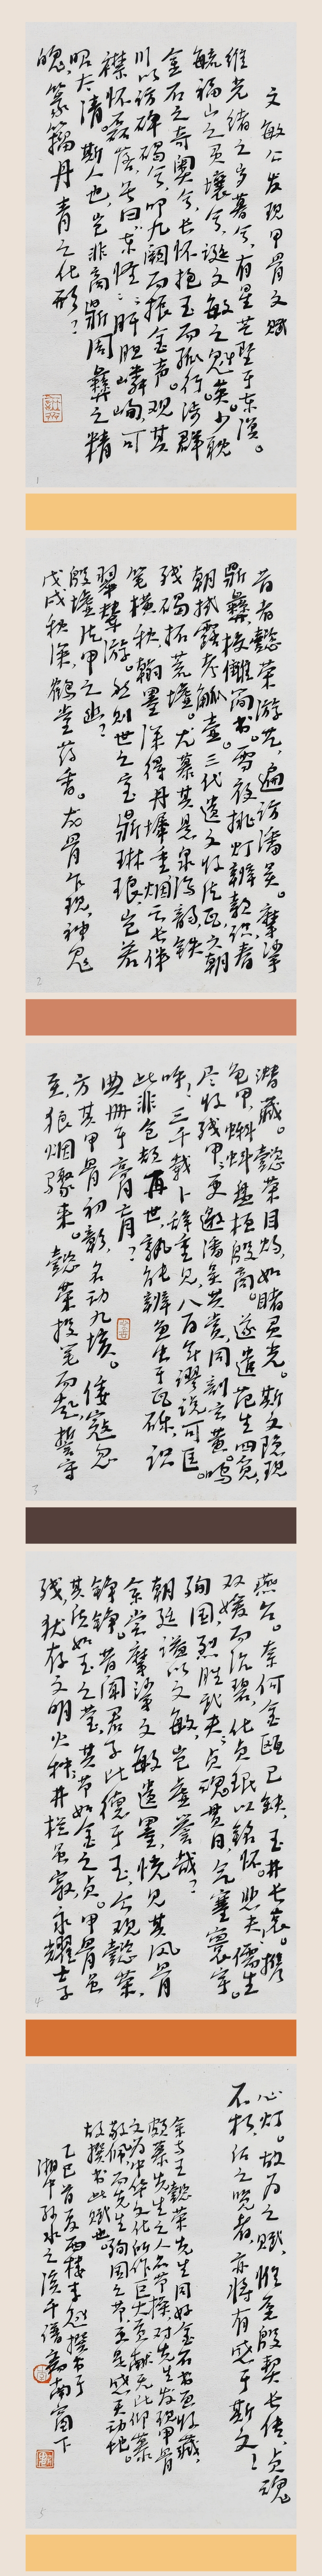 文敏公发现甲骨文赋
维光绪之岁暮兮，有星芒坠于东溟。
毓福山之灵壤兮，诞文敏之魁英。少耽
金石之奇奥兮，长怀抱玉而孤行。涉群
川以访碑碣兮，叩九阙而振金声。观其
襟怀磊落，号曰东怪；肝胆嶙峋，可
昭太清。斯人也，岂非商鼎周彝之精
魄，篆籀丹青之化形？
1
昔者懿荣游艺，遍访潘吴。摩挲
鼎彝，校雠简书。雪夜挑灯辨款识，春
朝拭露考觚壶。三代遗文收片瓦，六朝
残碣拓荒墟。尤慕其悬泉海韵，铁
笔横秋，翰墨深得丹墀重，烟云长伴
翠辇游。然则世之宝鼎琳琅，岂若
殷墟片甲之幽？
戊戌秋深，鹤堂药香。龙骨乍现，神鬼
2
潜藏。懿荣目灼，如睹灵光。斯文隐现
龟甲，蝌蚪盘桓殷商。遂遣范生四觅，
尽收残甲；更邀潘吴共赏，同剖玄黄。呜
呼！三千载卜辞重见，八百年谬说可匡。
此非仓颉再世，孰能辨鱼虫于瓦砾，识
典册于膏肓？
方其甲骨初彰，名动九垓。倭寇忽
至，狼烟骤来。懿荣投笔而起，誓守
3
燕台。奈何金瓯已缺，玉井长哀。携
双媛而沉碧，化贞珉以铭怀。悲夫！儒生
殉国，烈胜武夫；贞魂贯日，气塞寰宇。
朝廷谥以文敏，岂虚誉哉？
余尝摩挲文敏遗墨，恍见其风骨
铮铮。昔闻君子比德于玉，今观懿荣，
其片如玉之莹，其节如金之贞。甲骨虽
残，犹存文明火种；井栏虽寂，永耀士子
4
心灯。故为之赋，惟愿殷契长传，贞魂
不朽，后之览者，亦将有感于斯文！
余与王懿荣先生同好金石书画收藏，
颇慕先生之人品节操，对先生发现甲骨
文为中华文化所作巨大贡献无比仰慕
敬佩，而先生殉国之节更是感天动地。
故撰书此赋也。
乙巳首夏西楼李
5